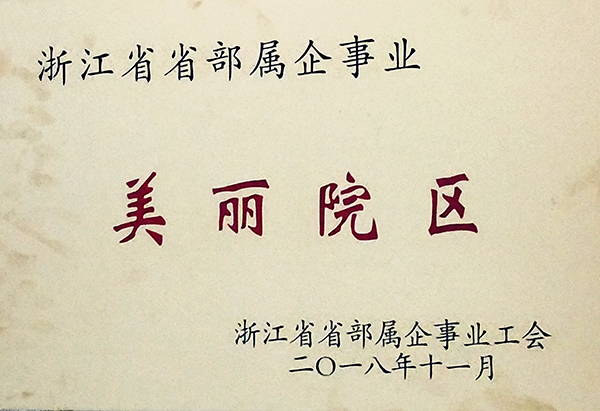 浙江省省部属企事业
美丽院区
浙江省省部属企事业工会
二〇一八年十一月